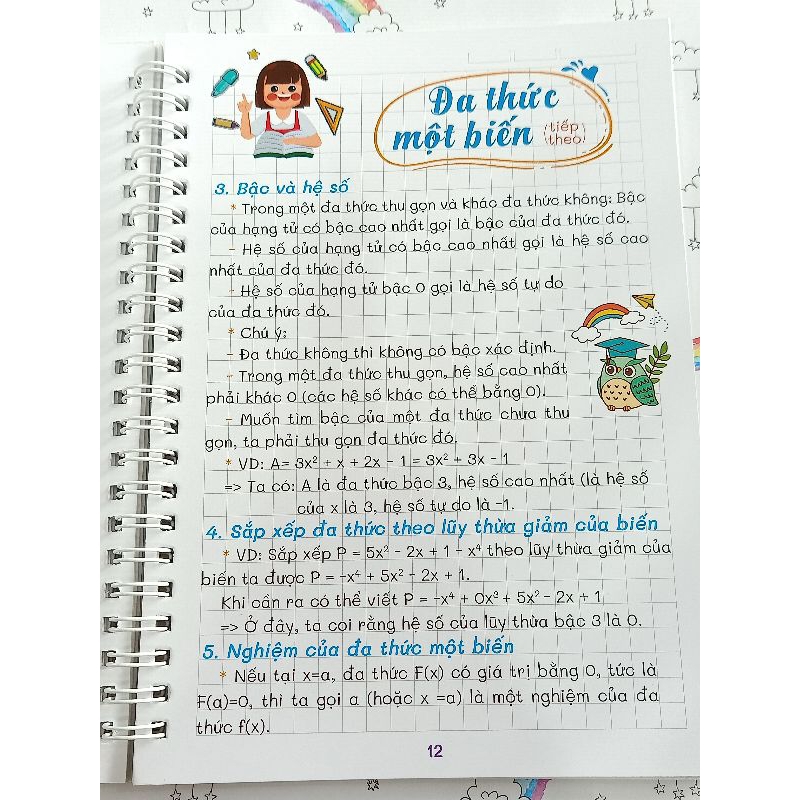 Đa thức
một biến (tiếp theo)
3. Bậc và hệ số
* Trong một đa thức thu gọn và khác đa thức không: Bậc
của hạng tử có bậc cao nhất gọi là bậc của đa thức đó.
- Hệ số của hạng tử có bậc cao nhất gọi là hệ số cao
nhất của đa thức đó.
- Hệ số của hạng tử bậc 0 gọi là hệ số tự do
của đa thức đó.
* Chú ý:
- Đa thức không thì không có bậc xác định.
- Trong một đa thức thu gọn, hệ số cao nhất
phải khác 0 (các hệ số khác có thể bằng 0).
- Muốn tìm bậc của một đa thức chưa thu
gọn, ta phải thu gọn đa thức đó.
* VD: A= 3x² + x + 2x - 1 = 3x² + 3x - 1
=> Ta có: A là đa thức bậc 3, hệ số cao nhất (là hệ số
của x là 3, hệ số tự do là -1.
4. Sắp xếp đa thức theo lũy thừa giảm của biến
* VD: Sắp xếp P = 5x² - 2x + 1 - x⁴ theo lũy thừa giảm của
biến ta được P = -x⁴ + 5x² - 2x + 1.
Khi cần ra có thể viết P = -x⁴ + 0x³ + 5x² - 2x + 1
=> Ở đây, ta coi rằng hệ số của lũy thừa bậc 3 là 0.
5. Nghiệm của đa thức một biến
* Nếu tại x=a, đa thức F(x) có giá trị bằng 0, tức là
F(a)=0, thì ta gọi a (hoặc x =a) là một nghiệm của đa
thức f(x).
12